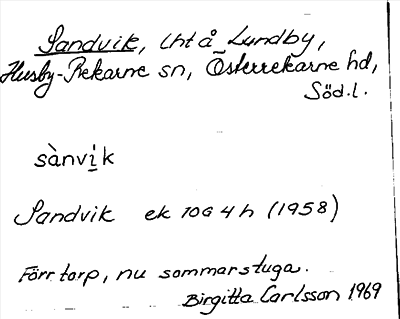 Sandvik, lht å Lundby,
Husby-Rekarne sn, Österrekarne hd,
Söd.l.
sànvi̱k
Sandvik ek 10G 4h (1958)
Förr torp, nu sommarstuga.
Birgitta Carlsson 1969